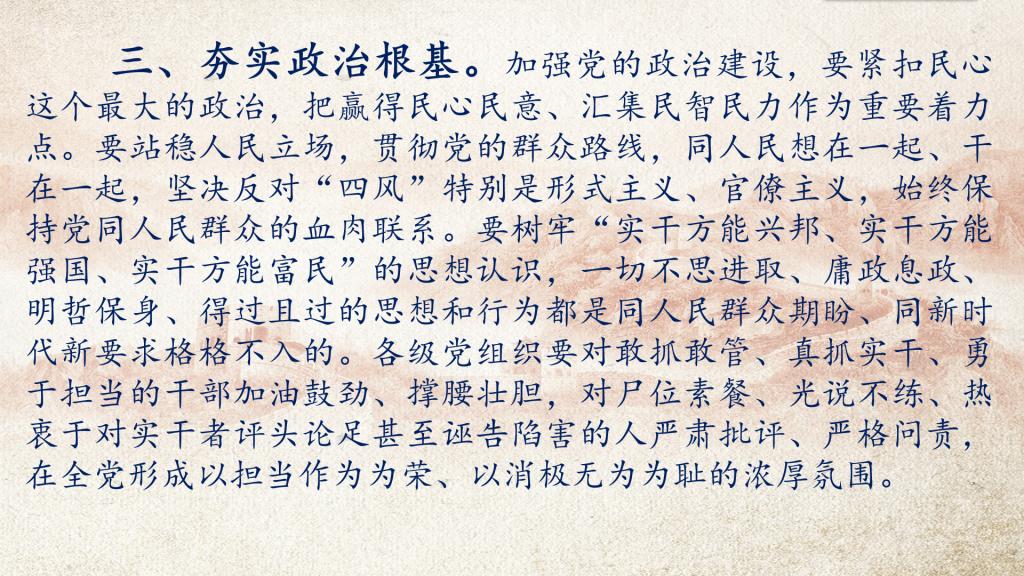 三、夯实政治根基。加强党的政治建设，要紧扣民心
这个最大的政治，把赢得民心民意、汇集民智民力作为重要着力
点。要站稳人民立场，贯彻党的群众路线，同人民想在一起、干
在一起，坚决反对“四风”特别是形式主义、官僚主义，始终保
持党同人民群众的血肉联系。要树牢“实干方能兴邦、实干方能
强国、实干方能富民”的思想认识，一切不思进取、庸政怠政、
明哲保身、得过且过的思想和行为都是同人民群众期盼、同新时
代新要求格格不入的。各级党组织要对敢抓敢管、真抓实干、勇
于担当的干部加油鼓劲、撑腰壮胆，对尸位素餐、光说不练、热
衷于对实干者评头论足甚至诬告陷害的人严肃批评、严格问责，
在全党形成以担当作为为荣、以消极无为为耻的浓厚氛围。